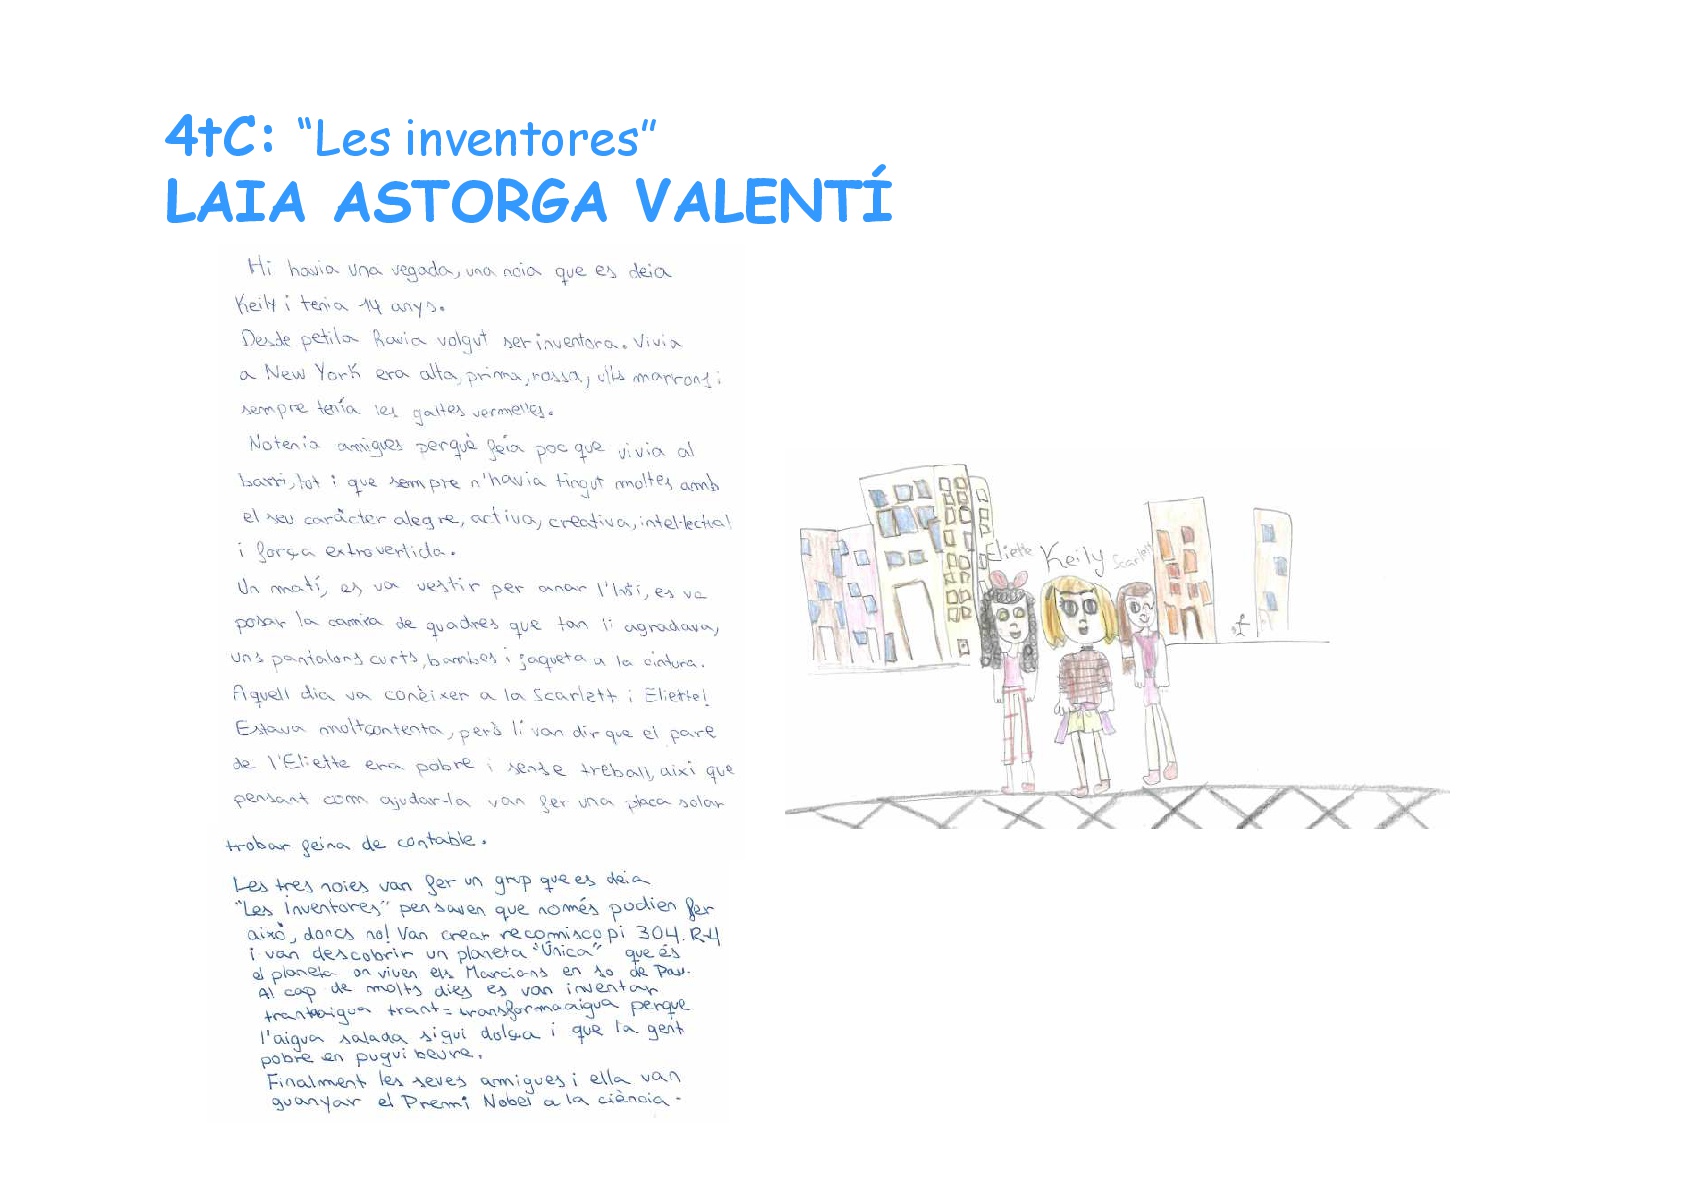 4tC: “Les inventores”
LAIA ASTORGA VALENTÍ
Hi havia una vegada, una noia que es deia
Keily i tenia 14 anys.
Desde petita havia volgut ser inventora. Vivia
a New York era alta, prima, rossa, ulls marrons i
sempre tenía les galtes vermelles.
No tenia amigues perquè feia poc que vivia al
barri, tot i que sempre n'havia tingut moltes amb
el seu caràcter alegre, activa, creativa, intel·lectual
i força extrovertida.
Un matí, es va vestir per anar l'Insti, es va
posar la camisa de quadres que tan li agradava,
uns pantalons curts, bambes i jaqueta a la cintura.
Aquell dia va conèixer a la Scarlett i Eliette!
Estava molt contenta, però li van dir que el pare
de l'Eliette era pobre i sense treball, així que
pensant com ajudar-la van fer una placa solar
trobar feina de contable.
Les tres noies van fer un grup que es deia
"Les inventores" pensaven que només podien fer
això, doncs no! Van crear recomiscopi 304. R-4
i van descobrir un planeta "Única" que és
el planeta on viven els Marcians en so de Pau.
Al cap de molts dies es van inventar
trantaigua trant = transformaaigua perque
l'aigua salada sigui dolça i que la gent
pobre en pugui beure.
Finalment les seves amigues i ella van
guanyar el Premi Nobel a la ciència.
Eliette Keily Scarlett